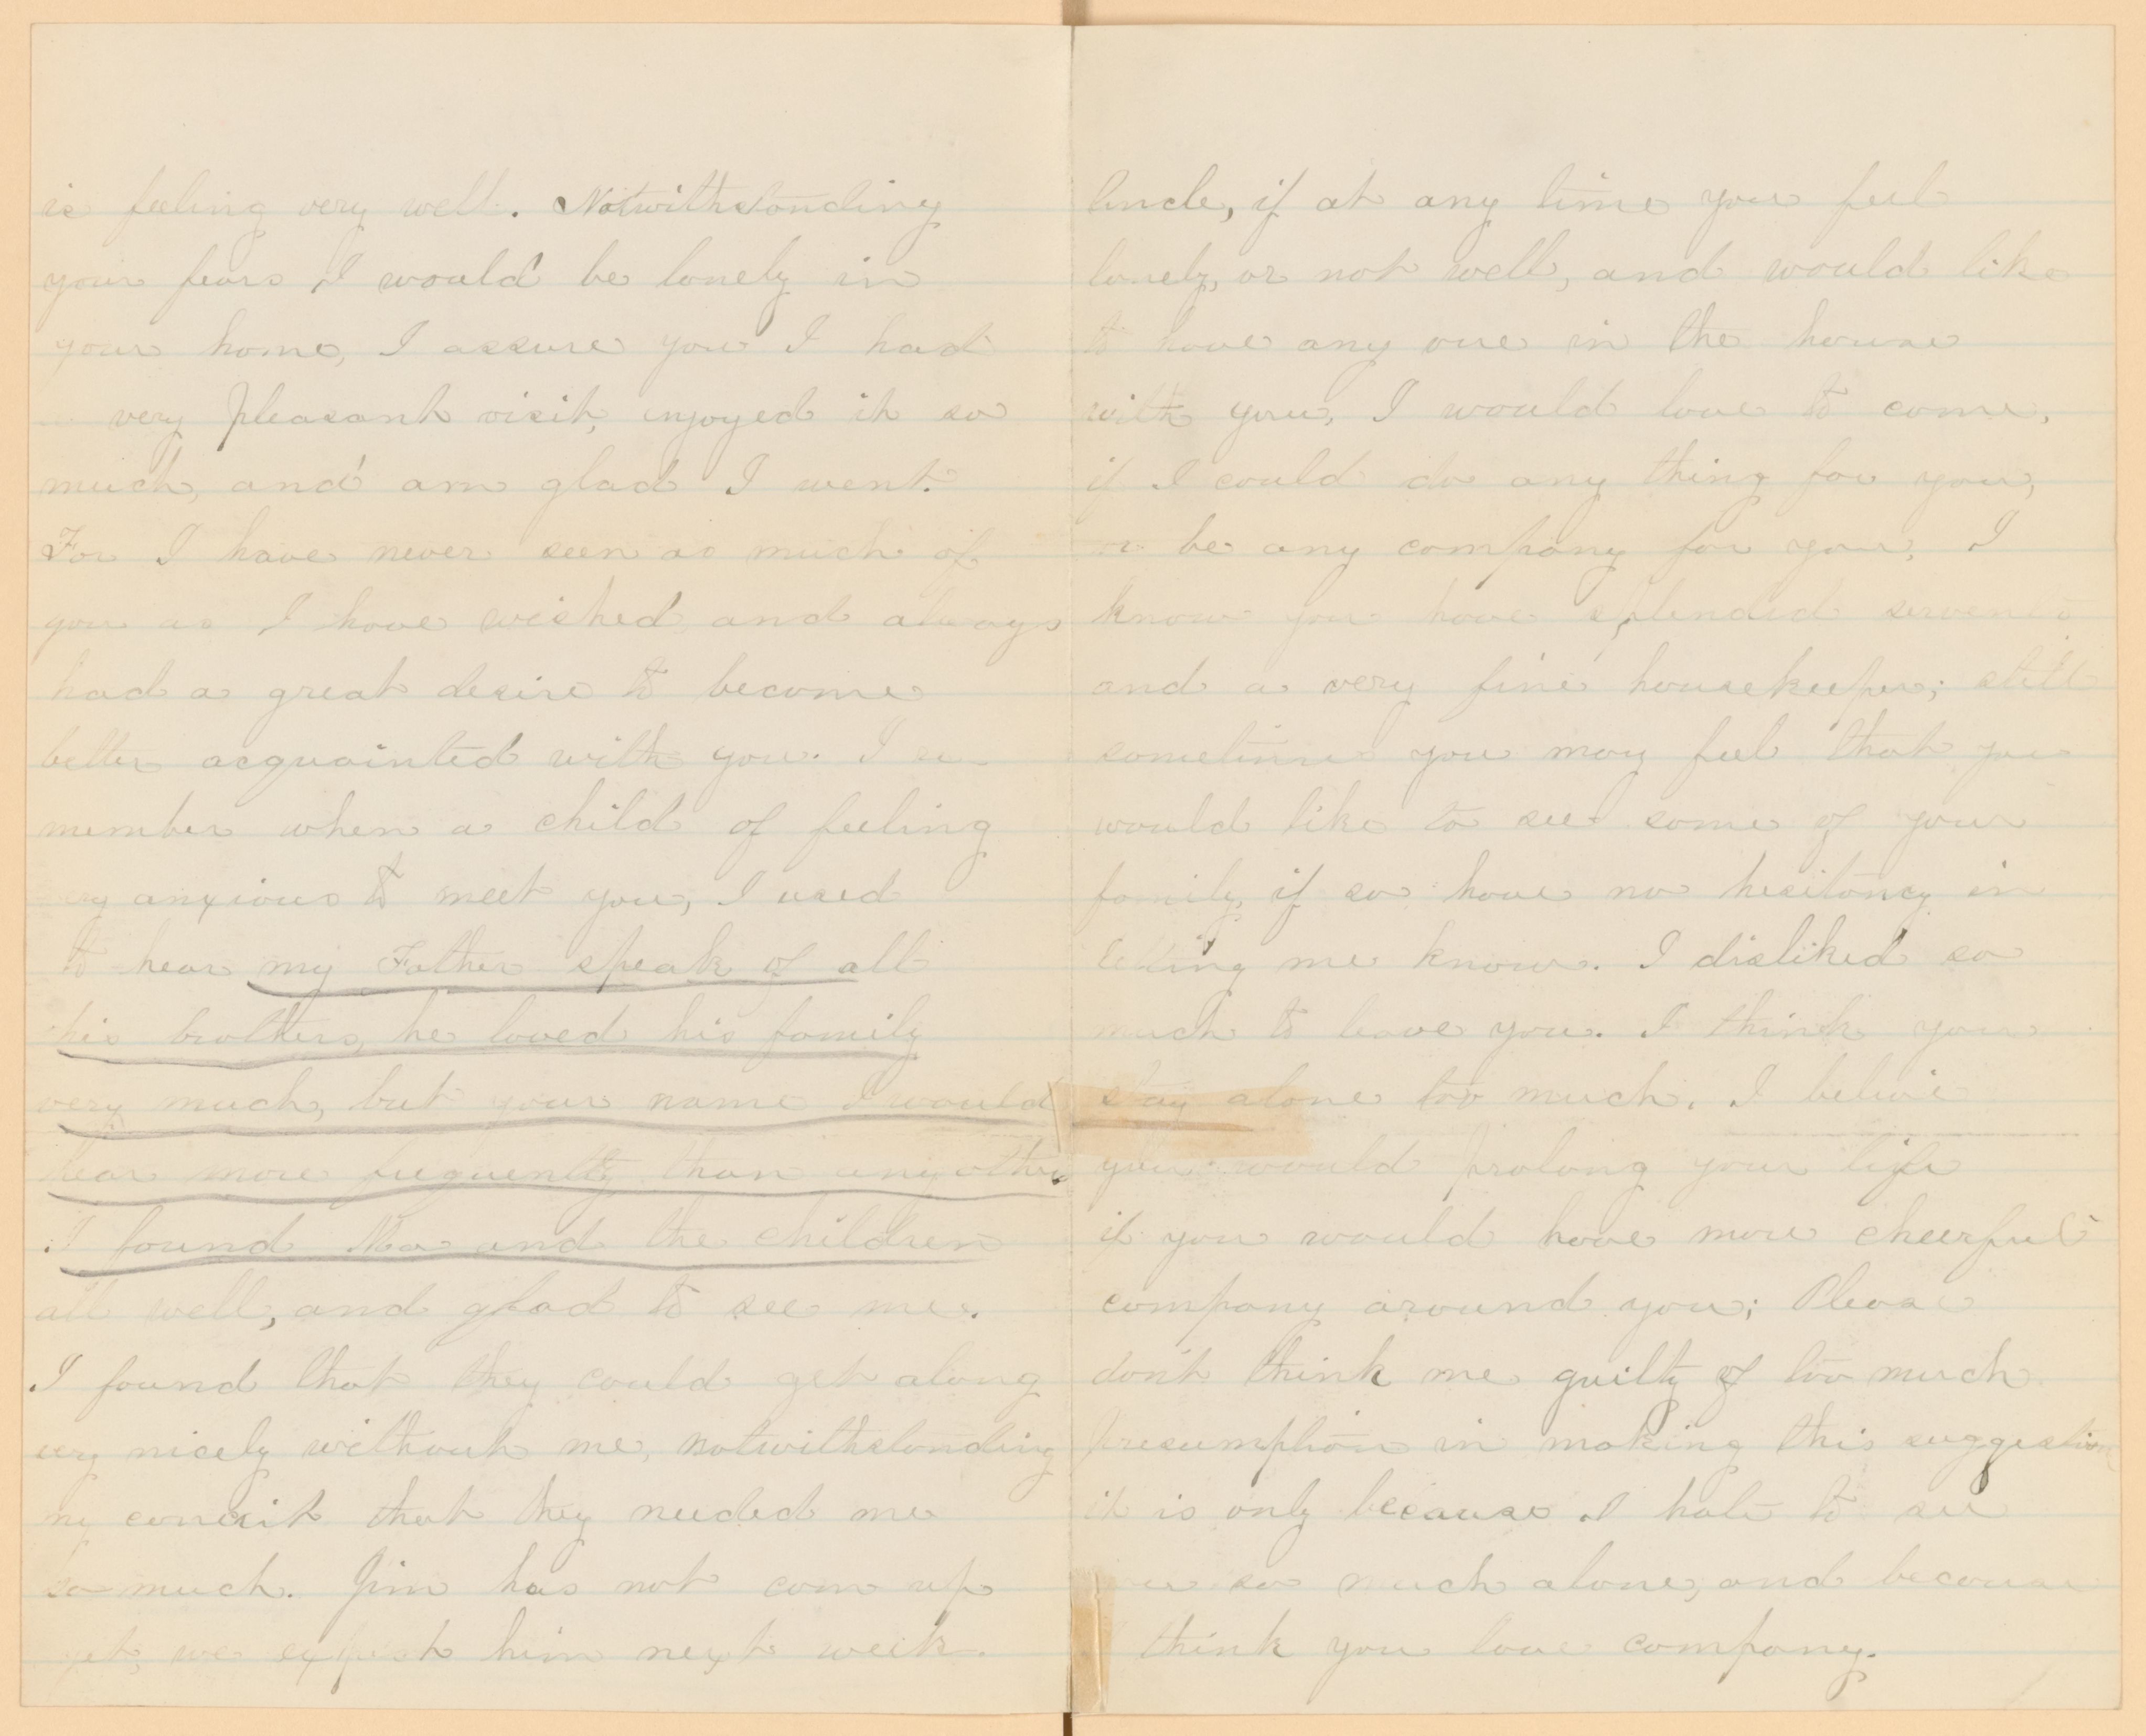 is feeling very well. Notwithstanding
your fears I would be lonely in
your home, I assure you I had
very pleasant visit, enjoyed it so
much, and am glad I went.
For I have never seen as much of
you as I have wished and always
had a great desire to become
better acquainted with you. I re-
member when a child of feeling
anxious to meet you, I used
to hear my Father speak of all
his brothers, he loved his family
very much, but your name I would
hear more frequently than any other
I found Ma and the children
all well, and glad to see me.
I found that they could get along
very nicely without me, notwithstanding
my conceit that they needed me
so much. Jim has not com up
yet, we expect him next week.
Uncle, if at any time you feel
lonely, or not well, and would like
to have any one in the house
with you, I would love to come,
if I could do any thing for you,
or be any company for you, I
know you have splendid servents
and a very fine housekeeper; still
sometimes you may feel that you
would like to see some of your
family, if so have no hesitancy in
letting me know. I disliked so
much to leave you. I think you
stay alone too much. I believe
you would prolong your life
if you would have more cheerful
company around you; Please
don't think me guilty of too much
presumption in making this suggestion
it is only because I hate to see
you so much alone, and because
I think you love company.